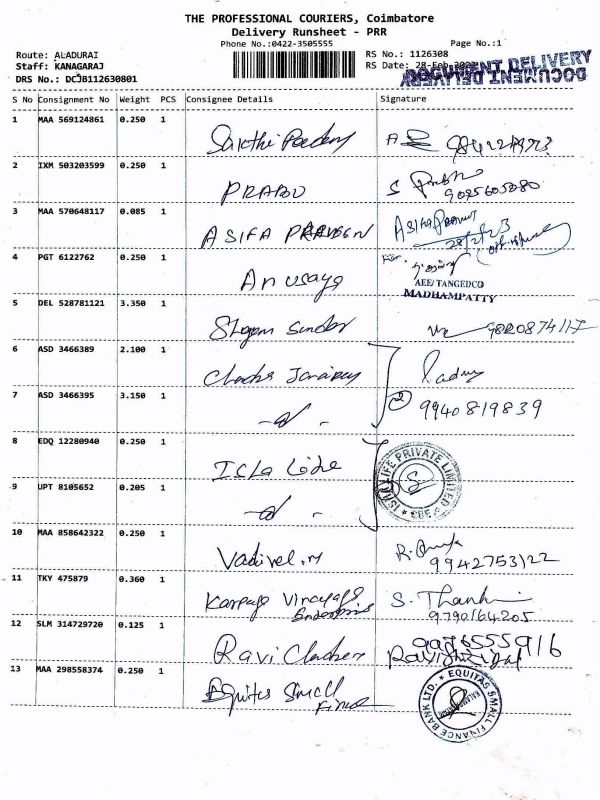 THE PROFESSIONAL COURIERS, Coimbatore
Delivery Runsheet - PRR
Phone No.:0422-3505555 Page No.:1
Route: ALADURAI RS No.: 1126308
Staff: KANAGARAJ RS Date: 28-Feb
DRS No.: DCJB112630801
DOCUMENT DELIVERY
DOCUMENT DELIVERY
S No Consignment No Weight PCS Consignee Details Signature
1 MAA 569124861 0.250 1
2 IXM 503203599 0.250 1 PRABU
9025605080
3 MAA 570648117 0.085 1 ASIFA PRAVEEN ASIFA PRAVEEN
28/2/23
4 PGT 6122762 0.250 1 Anusaya
AEE/TANGEDCO
MADHAMPATTY
5 DEL 528781121 3.350 1 Shyam Sundar 9820874117
6 ASD 3466389 2.100 1
7 ASD 3466395 3.150 1 2 9940819839
8 EDQ 12280940 0.250 1 Isla Life
ISLA LIFE PRIVATE LIMITED * CBE *
9 UPT 8105652 0.205 1
10 MAA 858642322 0.250 1 Vadivel.M
9942753122
11 TKY 475879 0.360 1 Karpaga Vinayaga
Enterprises
9790164205
12 SLM 314729720 0.125 1 Ravi 9976555916
13 MAA 298558374 0.250 1 Equitas Small
Finance
EQUITAS SMALL FINANCE BANK LTD.